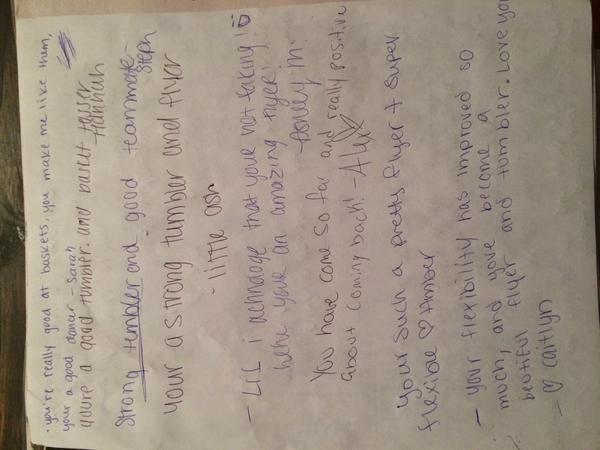 · you're really good at baskets. you make me like them,
your a good dancer - Sarah
you're a good tumbler. and basket tosser
- Hannah
Strong tumbler and good teammate
- Steph
your a strong tumbler and flyer
- little ash
- LiL i acknowledge that your not faking!
here your an amazing flyer!
- Ashley M.
You have come so far and really positive
about coming back! - Alex
your such a pretty flyer + super
flexible ♡ Amber
- your flexibility has improved so
much, and youve become a
beutiful flyer and tumbler. Love you
- ♡ caitlyn